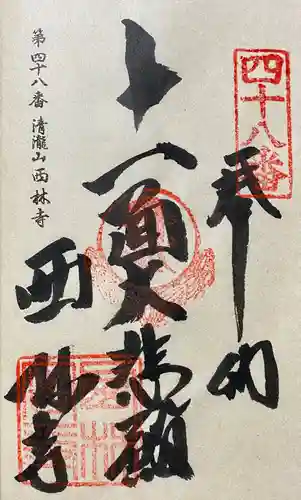 四十八番
奉納
十一面大悲殿
西林寺
第四十八番 清瀧山西林寺